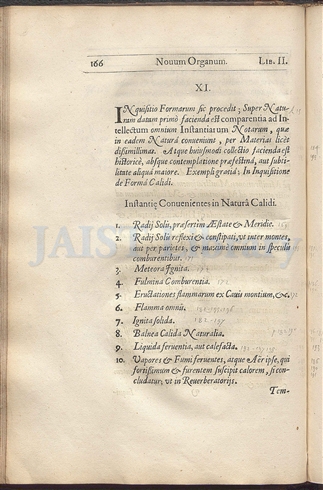 166 Nouum Organum. LIB. II.
XI.
INquisitio Formarum sic procedit; Super Natu-
ram datum primò facienda est comparentia ad In-
tellectum omnium Instantiarum Notarum, quæ
in eadem Naturâ conueniunt, per Materias licèt
dissimillimas. Atque huiusmodi collectio facienda est
historicè, absque contemplatione præfestinâ, aut subti-
litate aliquâ maiore. Exempli gratiâ; In Inquisitione
de Formâ Calidi.
Instantię Conuenientes in Naturâ Calidi.
1. Radij Solis, præsertim Æstate & Meridie.
2. Radij Solis reflexi & constipati, vt inter montes,
aut per parietes, & maximè omnium in speculis
comburentibus.
3. Meteora Ignita.
4. Fulmina Comburentia.
5. Eructationes flammarum ex Cauis montium, &c.
6. Flamma omnis.
7. Ignita solida.
8. Balnea Calida Naturalia.
9. Liquida feruentia, aut calefacta.
10. Vapores & Fumi feruentes, atque Aër ipse, qui
fortissimum & furentem suscipit calorem, si con-
cludatur; vt in Reuerberatorijs.
Tem-
JAIST